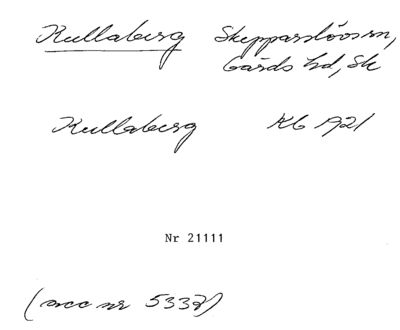 Kullaberg Skepparslövs sn,
Gärds hd, Sk
Kullaberg Kb 1921
Nr 21111
(acc nr 5332)